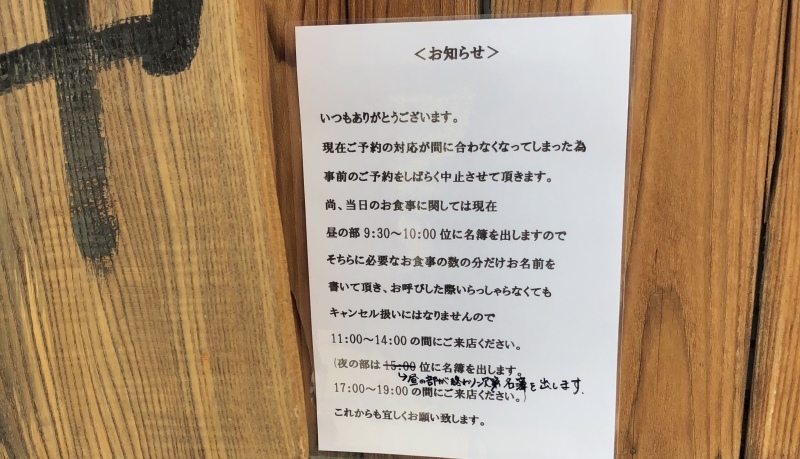 ＜お知らせ＞
いつもありがとうございます。
現在ご予約の対応が間に合わなくなってしまった為
事前のご予約をしばらく中止させて頂きます。
尚、当日のお食事に関しては現在
昼の部 9:30～10:00 位に名簿を出しますので
そちらに必要なお食事の数の分だけお名前を
書いて頂き、お呼びした際いらっしゃらなくても
キャンセル扱いにはなりませんので
11:00～14:00 の間にご来店ください。
(夜の部は 15:00 位に名簿を出します。
↳昼の部が終わり次第名簿を出します.
17:00～19:00 の間にご来店ください。)
これからも宜しくお願い致します。